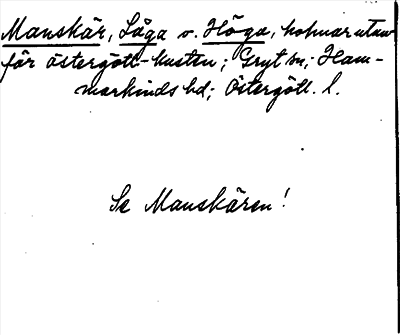 Manskär, Låga o. Höga, holmar utan-
för östergötl-kusten; Gryt sn; Ham-
markinds hd; Östergötl. l.
Se Manskären!